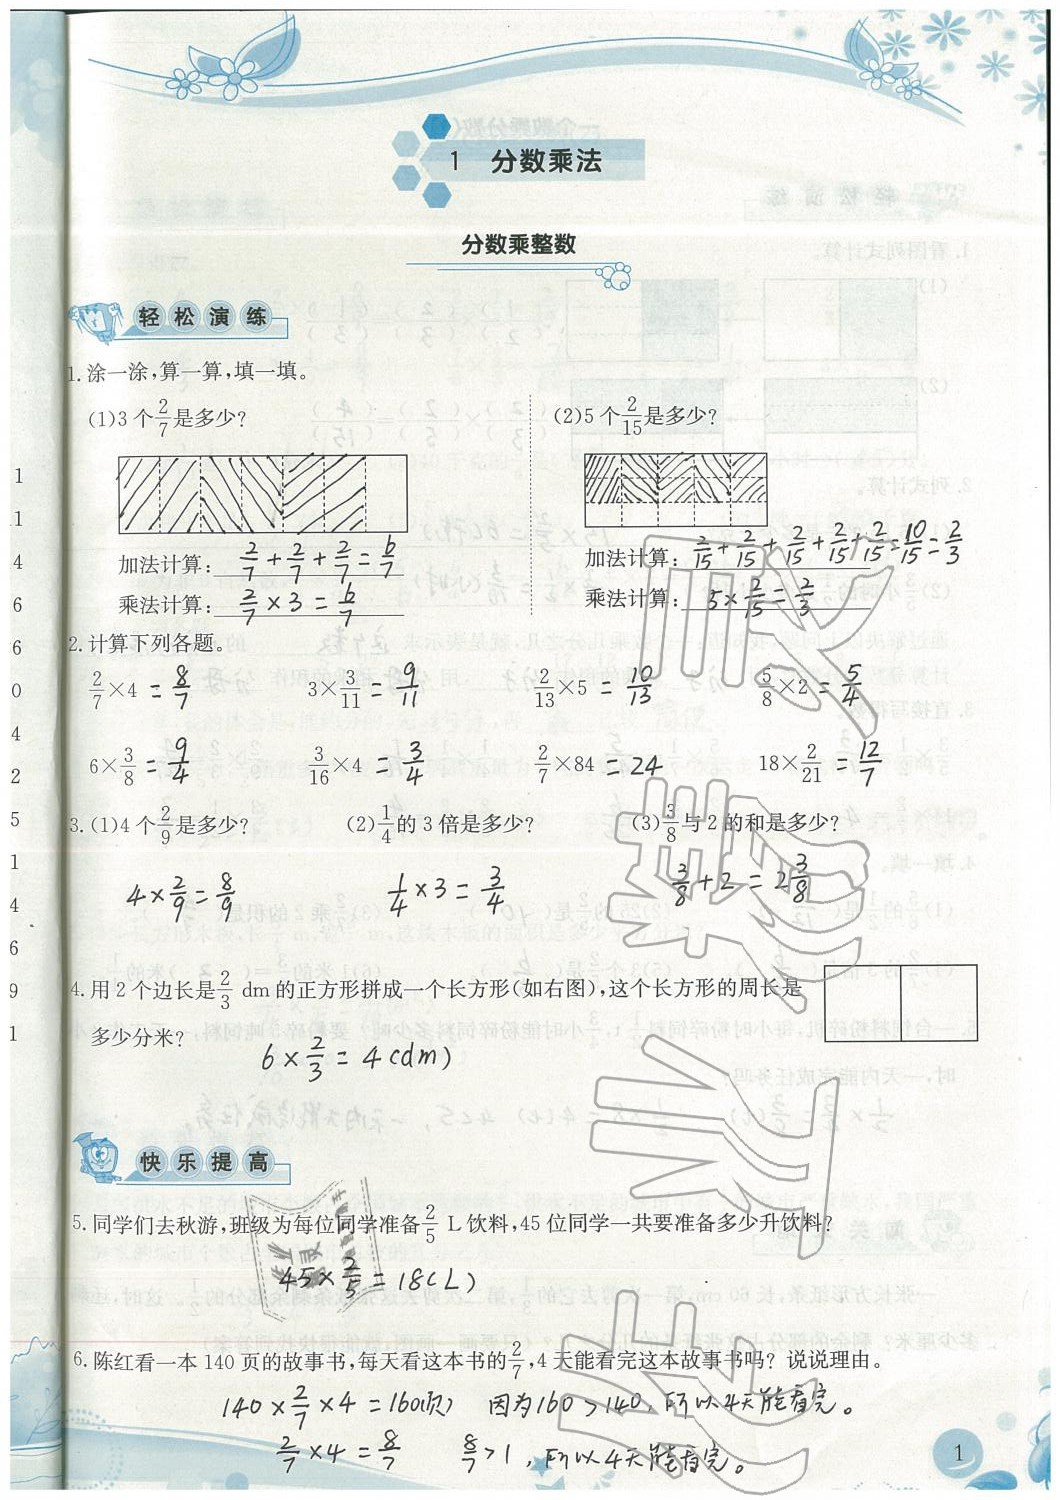 1 分数乘法
分数乘整数
轻松演练
1.涂一涂,算一算,填一填。
(1)3个2/7是多少?
(2)5个2/15是多少?
加法计算: 2/7+2/7+2/7=6/7
乘法计算: 2/7×3=6/7
加法计算: 2/15+2/15+2/15+2/15+2/15=10/15=2/3
乘法计算: 5×2/15=2/3
2.计算下列各题。
2/7×4=8/7 3×3/11=9/11 2/13×5=10/13 5/8×2=5/4
6×3/8=9/4 3/16×4=3/4 2/7×84=24 18×2/21=12/7
3.(1)4个2/9是多少? (2)1/4的3倍是多少? (3)3/8与2的和是多少?
4×2/9=8/9 1/4×3=3/4 3/8+2=2 3/8
4.用2个边长是2/3 dm的正方形拼成一个长方形(如右图),这个长方形的周长是
多少分米?
6×2/3=4(dm)
快乐提高
5.同学们去秋游,班级为每位同学准备2/5 L饮料,45位同学一共要准备多少升饮料?
45×2/5=18(L)
6.陈红看一本140页的故事书,每天看这本书的2/7,4天能看完这本故事书吗? 说说理由。
140×2/7×4=160(页) 因为160>140,所以4天能看完。
2/7×4=8/7 8/7>1,所以4天能看完。
1
1
1
4
6
6
0
4
2
5
1
4
6
9
1